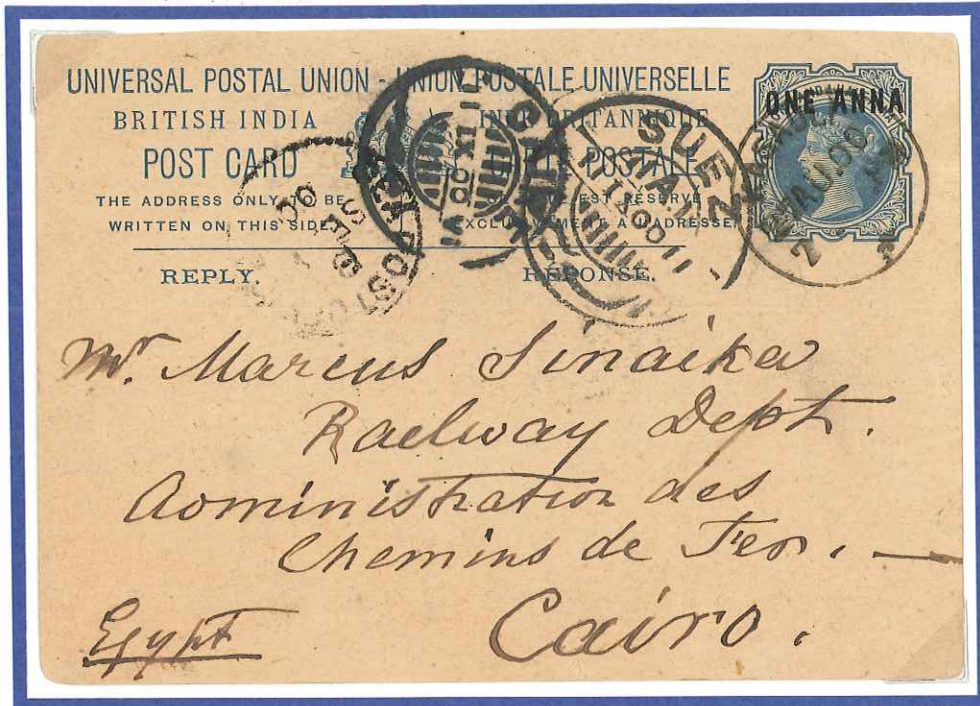 UNIVERSAL POSTAL UNION - UNION POSTALE UNIVERSELLE
BRITISH INDIA
INDE BRITANNIQUE
POST CARD
POSTALE
THE ADDRESS ONLY TO BE
WRITTEN ON THIS SIDE.
RESERVE
ADRESSE
REPLY.
RÉPONSE.
ONE ANNA
SUEZ
SEA POST
Mr. Marcus Sinaika
Railway Dept.
Administration des
Chemins de Fer.
Cairo.
Egypt